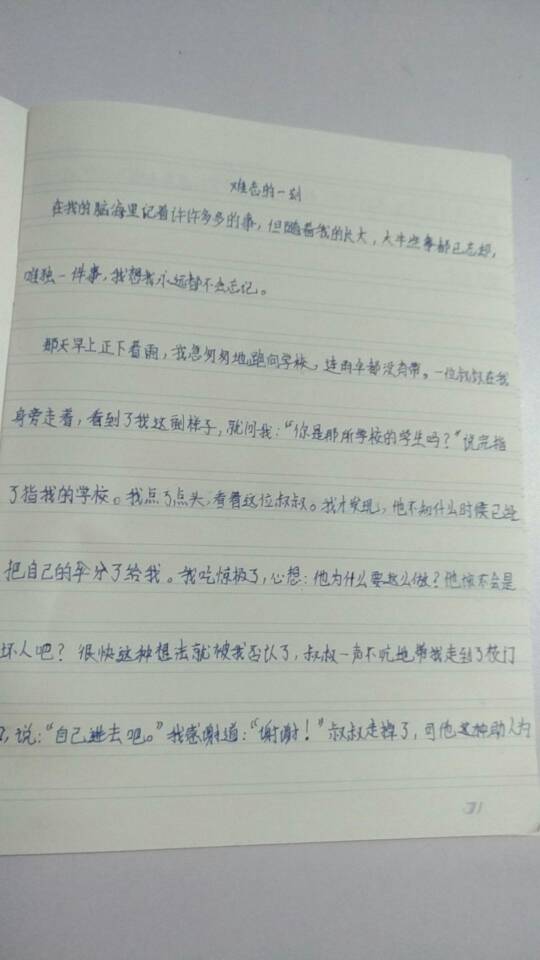 难忘的一刻
在我的脑海里记着许许多多的事，但随着我的长大，大半些事都已忘却，
唯独一件事，我想我永远都不会忘记。
那天早上正下着雨，我急匆匆地跑向学校，连雨伞都没有带。一位叔叔在我
身旁走着，看到了我这副样子，就问我：“你是那所学校的学生吗？”说完指
了指我的学校。我点了点头，看着这位叔叔。我才发现，他不知什么时候已经
把自己的伞分了给我。我吃惊极了，心想：他为什么要这么做？他该不会是
坏人吧？很快这种想法就被我否认了，叔叔一声不吭地带我走到了校门
说：“自己进去吧。”我感谢道：“谢谢！”叔叔走掉了，可他这种助人为
31